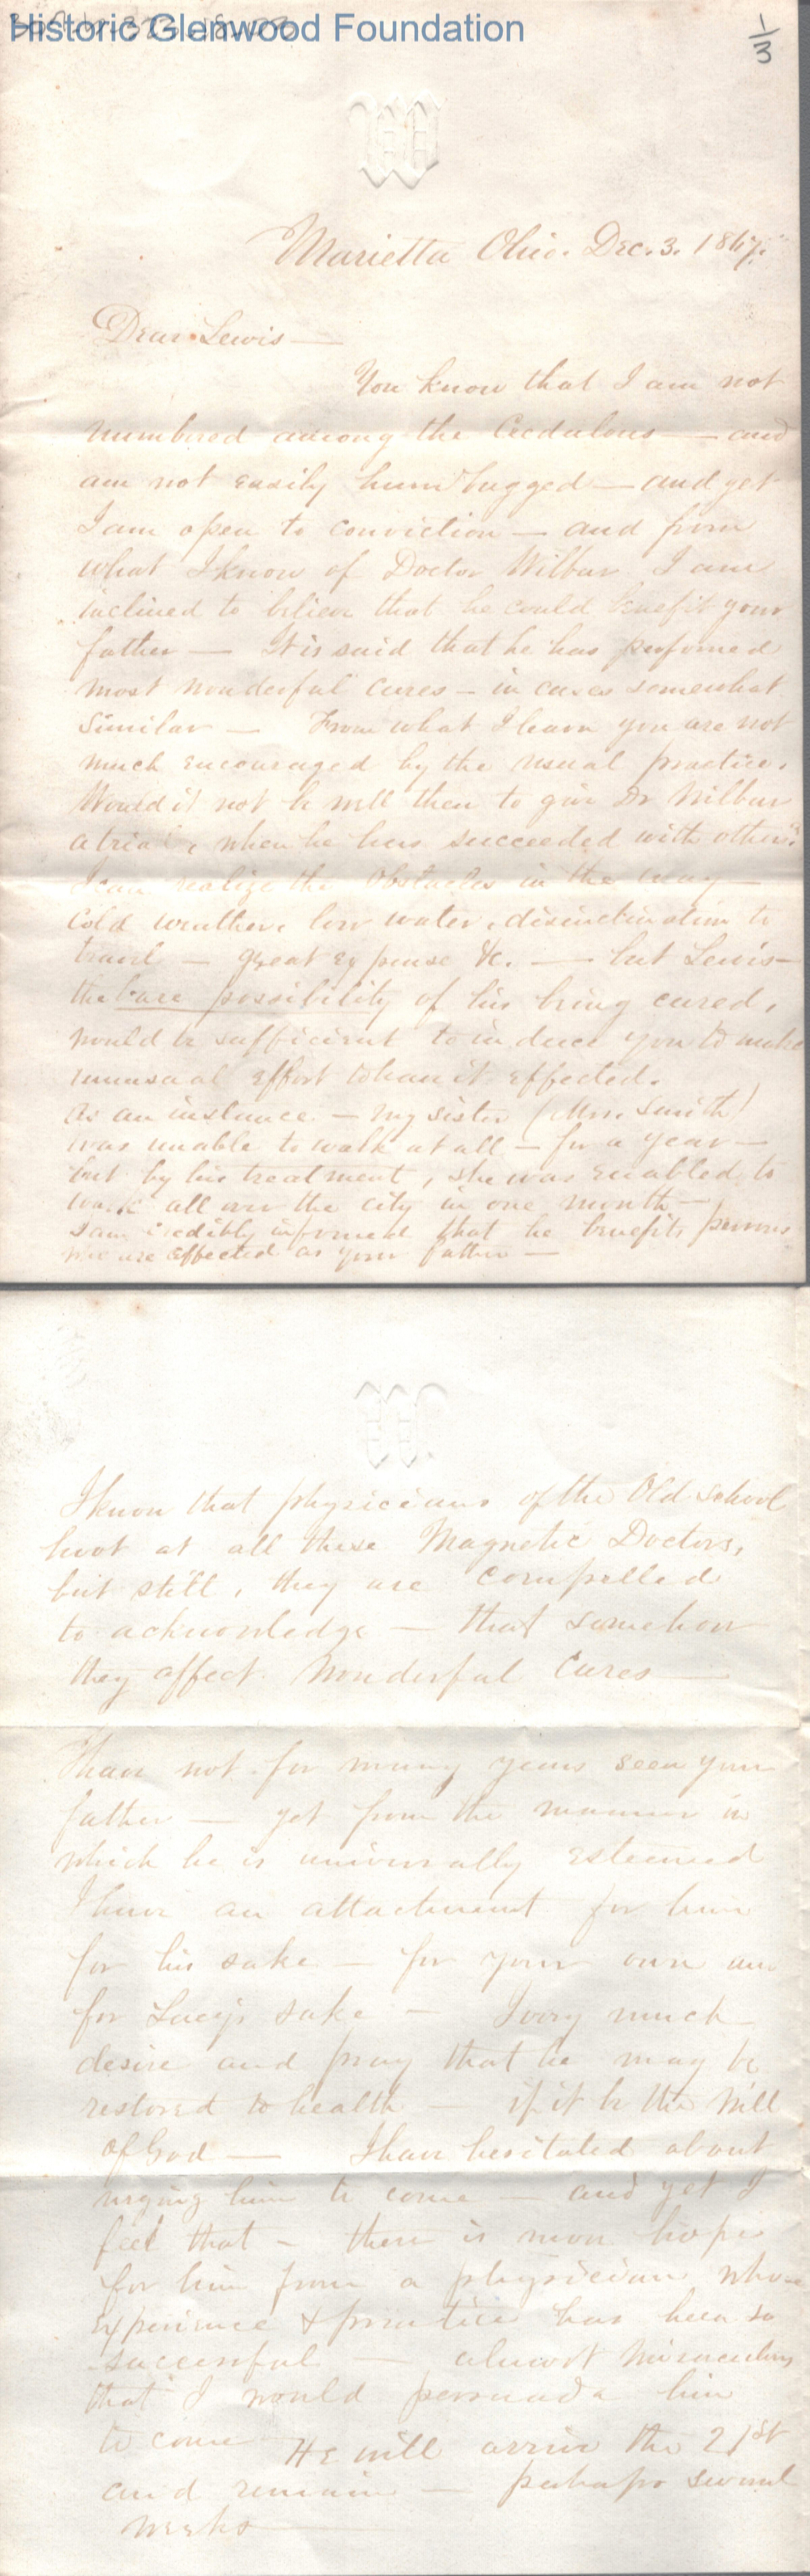 Historic Glenwood Foundation
1/3
W
Marietta Ohio. Dec. 3. 1867.
Dear Lewis —
You know that I am not
numbered among the Credulous — and
am not easily humbugged — and yet
I am open to conviction — and from
what I know of Doctor Wilbur I am
inclined to believe that he could benefit your
father — It is said that he has performed
most wonderful cures — in cases somewhat
similar — From what I learn you are not
much encouraged by the usual practice.
Would it not be well then to give Dr Wilbur
a trial, when he has succeeded with others.
I can realize the Obstacles in the way —
Cold weather, low water, disinclination to
travel — great expense &c. — but Lewis —
the bare possibility of his being cured,
would be sufficient to induce you to make
unusual effort to have it effected.
As an instance — my sister (Mrs. Smith)
was unable to walk at all — for a year —
but by his treatment, she was enabled to
walk all over the city in one month —
I am credibly informed that he benefits persons
who are affected as your father —
W
I know that physicians of the Old School
hoot at all these Magnetic Doctors,
but still, they are compelled
to acknowledge — that somehow
they affect wonderful Cures —
I have not for many years seen your
father — yet from the manner in
which he is universally esteemed
I have an attachment for him
for his sake — for your own and
for Lucy's sake — I very much
desire and pray that he may be
restored to health — if it be the will
of God — I have hesitated about
urging him to come — and yet I
feel that — there is more hope
for him from a physician whose
experience & practice has been so
successful — almost miraculous
that I would persuade him
to come He will arrive the 21st
and remain — perhaps several
weeks —